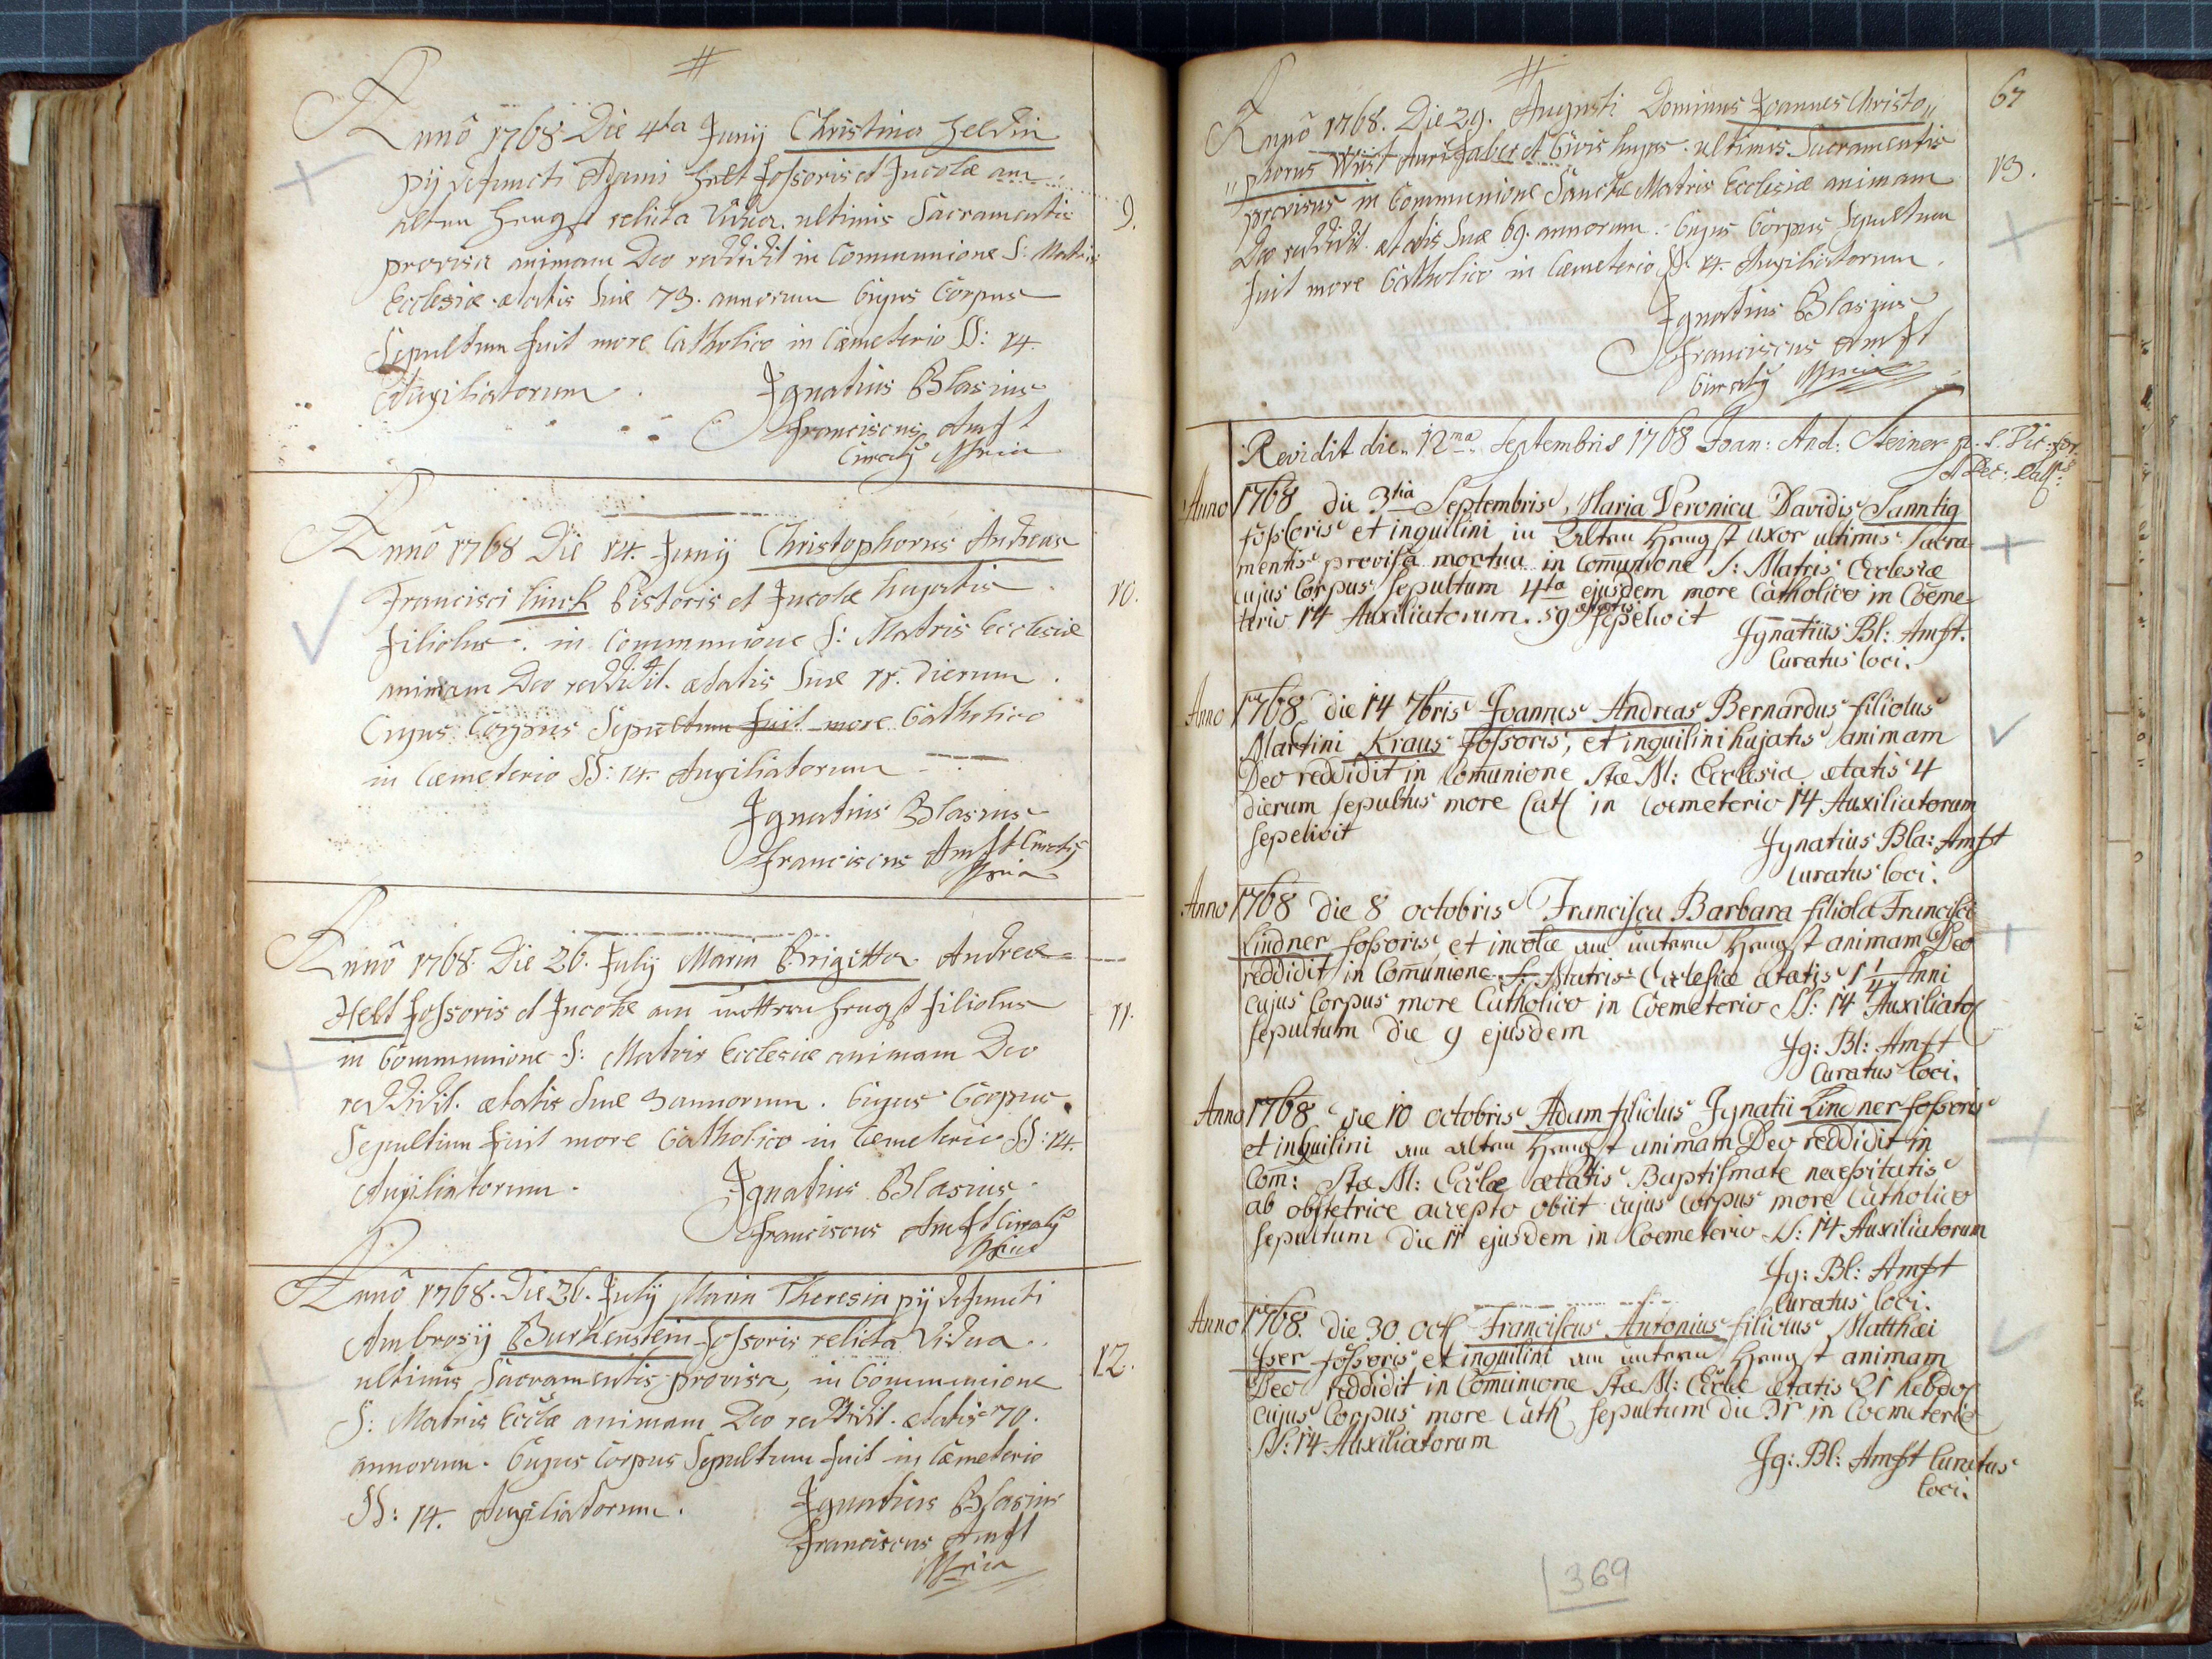 #
Anno 1768 Die 4ta Junij Christina Heldin
pij defuncti Adami Helt fossoris et Incolæ am
alten Hengst relicta Vidua. ultimis Sacramentis
provisa animam Deo reddidit in Communione S: Matris
Ecclesiæ ætatis suæ 73. annorum Cujus Corpus
Sepultum fuit more Catholico in Cæmeterio SS: 14.
Auxiliatorum.
9.
Ignatius Blasius
Franciscus Amft
Curatg Mria
Anno 1768 Die 14. Junij Christophorus Andreas
Francisci Linck Pistoris et Incolæ hujatis
filiolus. in Communione S: Matris Ecclesiæ
animam Deo reddidit. ætatis suæ 18. dierum.
Cujus Corpus Sepultum fuit more Catholico
in Cæmeterio SS: 14. Auxiliatorum
10.
Ignatius Blasius
Franciscus Amft Curatg
Mria
Anno 1768. Die 26. July Maria Brigitta Andreæ
Helt fossoris et Incolæ am mittern Hengst filiolus
in Communione S: Matris Ecclesiæ animam Deo
reddidit. ætatis suæ 3 annorum. Cujus Corpus
Sepultum fuit more Catholico in Cæmeterio SS: 14.
Auxiliatorum.
11.
Ignatius Blasius
Franciscus Amft Curatg
Mria
Anno 1768. Die 26. July Maria Theresia pij defuncti
Ambrosij Burkenstein fossoris relicta Vidua.
ultimis Sacramentis provisa, in Communione
S: Matris Eccłæ animam Deo reddidit. ætatis 70.
annorum. Cujus Corpus Sepultum fuit in Cæmeterio
SS: 14. Auxiliatorum.
12.
Ignatius Blasius
Franciscus Amft
Mria
#
67
Anno 1768. Die 29. Augusti Dominus Joannes Christo„
„phorus Wüst Aurifaber et Civis hujus. ultimis Sacramentis
provisus in Communione Sanctæ Matris Ecclesiæ animam
Deo reddidit. ætatis suæ 69. annorum. Cujus Corpus Sepultum
fuit more Catholico in Cæmeterio SS. 14. Auxiliatorum.
13.
Ignatius Blasius
Franciscus Amft
Curatg Mria
Revidit die 12ma Septembris 1768 Joan: And: Steiner p. t. Vic: for.
Anno 1768 die 3tia Septembris Maria Veronica Davidis Tanntig
fossoris et inquilini in Alten Hengst uxor ultimis sacra=
mentis provisa mortua in Com̅unione S: Matris Ecclesiæ
cujus Corpus sepultum 4ta ejusdem more Catholico in Coeme=
terio 14 Auxiliatorum. 59 ætatis sepelivit
Ignatius Bl: Amft.
Curatus loci.
Anno 1768 die 14 7bris Joannes Andreas Bernardus filiolus
Martini Kraus fossoris, et inquilini hujatis animam
Deo reddidit in Com̅unione Stæ M: Ecclesiæ ætatis 4
dierum sepultus more Cath in Coemeterio 14 Auxiliatorum
sepelivit
Ignatius Bla: Amft
Curatus loci.
Anno 1768 die 8 octobris Francisca Barbara filiola Francisci
Lindner fossoris et incolæ am untern Hengst animam Deo
reddidit in Com̅unione S. Matris Ecclesiæ ætatis 1 1/4 Anni
cujus Corpus more Catholico in Coemeterio SS: 14 Auxiliator
sepultum die 9 ejusdem
Ig: Bl: Amft
Curatus loci.
Anno 1768 die 10 octobris Adam filiolus Ignatii Lindner fossoris
et inquilini am alten Hengst animam Deo reddidit in
Com̅: Stæ M: Eccłæ ætatis Baptismate necessitatis
ab obstetrice accepto obiit cujus corpus more Catholico
sepultum die 11 ejusdem in Coemeterio SS: 14 Auxiliatorum
Ig: Bl: Amft
Curatus loci.
Anno 1768. die 30 oct Franciscus Antonius filiolus Matthæi
Iser fossoris et inquilini am untern Hengst animam
Deo reddidit in Com̅unione Stæ M: Eccłæ ætatis 21 hebdo
cujus Corpus more Cath sepultum die 31 in Coemeterio
SS: 14 Auxiliatorum
Ig: Bl: Amft Curatus
loci.
369